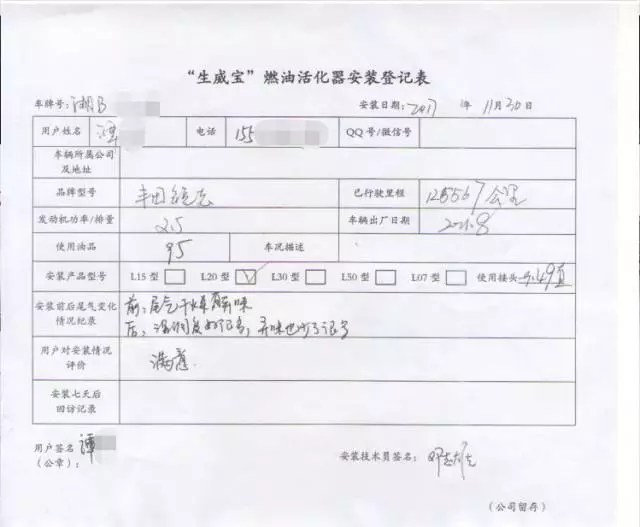 “生威宝”燃油活化器安装登记表
车牌号: 湘B 安装日期: 2017 年 11月30日
用户姓名 谭 电话 155 QQ号/微信号
车辆所属公司
及地址
品牌型号 丰田锐志 已行驶里程 125567公里
发动机功率/排量 2.5 车辆出厂日期
使用油品 95 车况描述
安装产品型号 L15型 L20型 L30型 L50型 L07型 使用接头
安装前后尾气变化
情况纪录
前: 尾气干燥 异味
后: 异味也少了很多
用户对安装情况
评价
满意
安装七天后
回访记录
用户签名 谭
(公章):
安装技术员签名:
(公司留存)